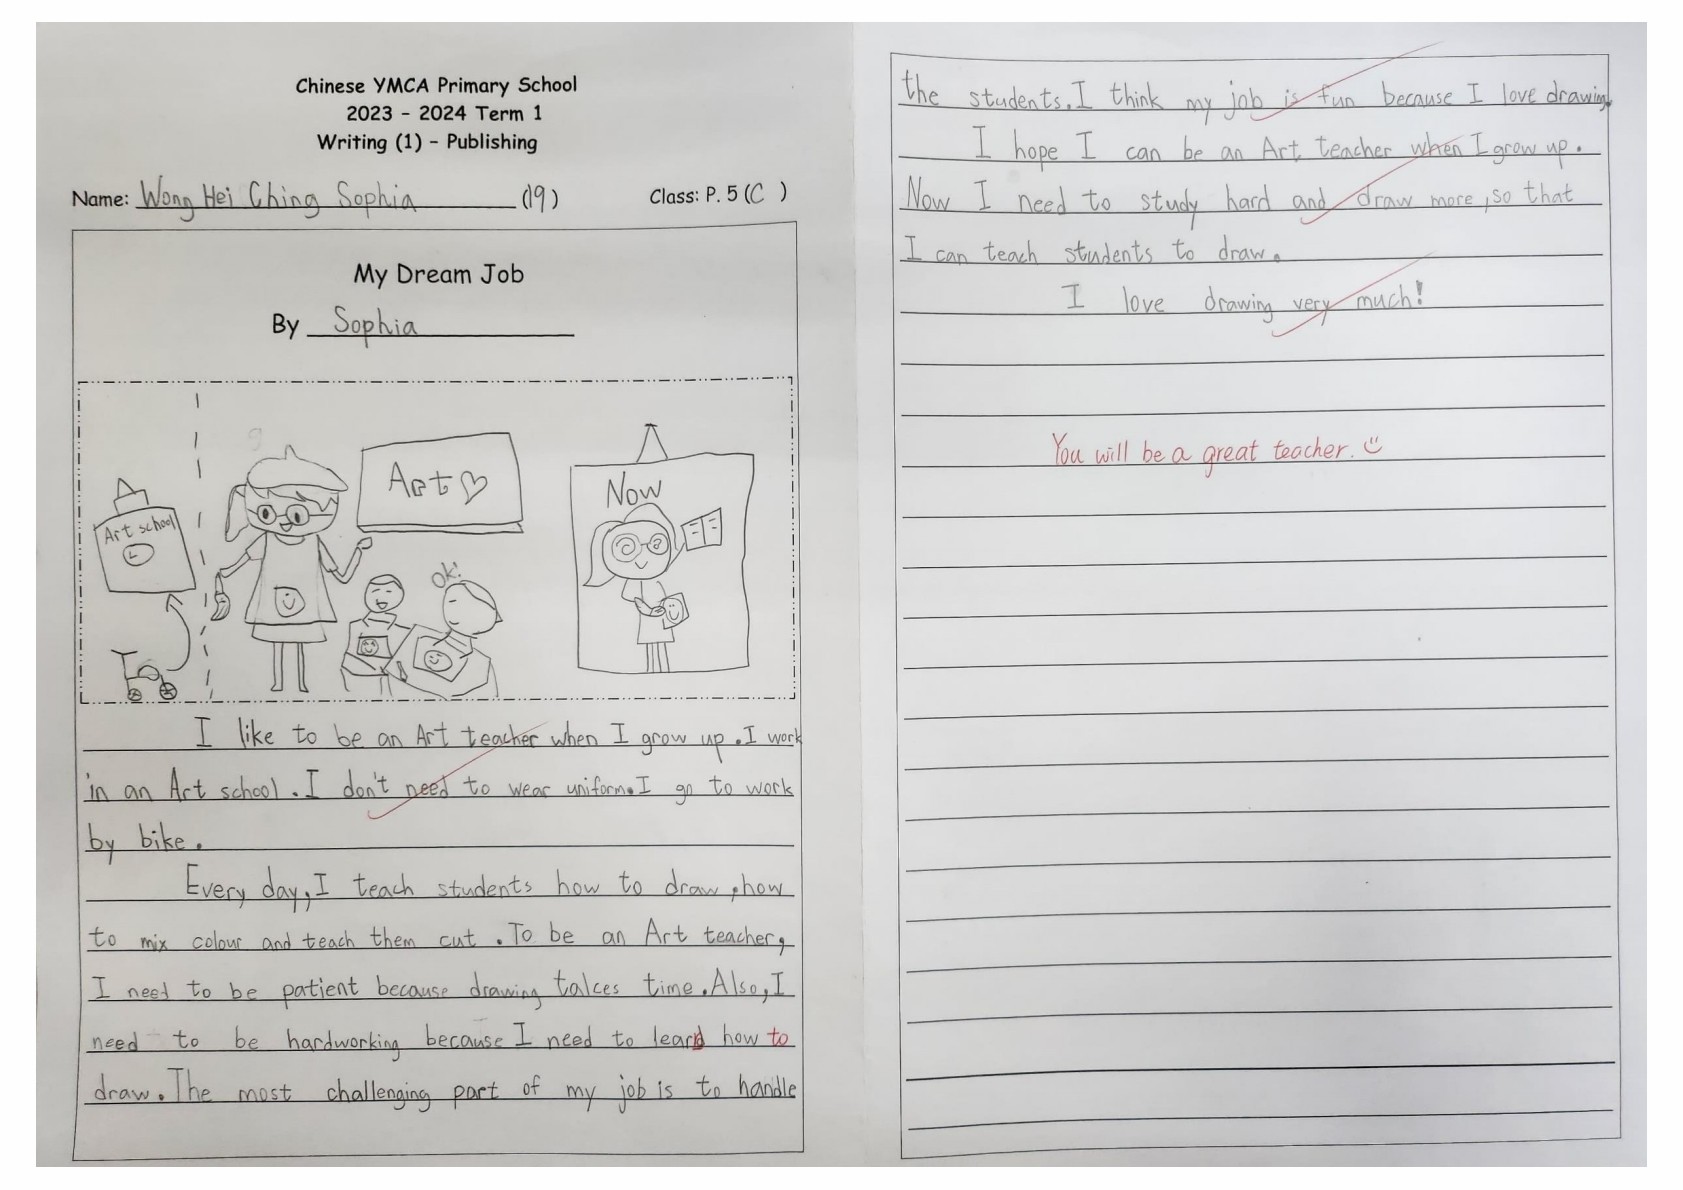 Chinese YMCA Primary School
2023 - 2024 Term 1
Writing (1) - Publishing
Name: Wong Hei Ching Sophia (19) Class: P. 5 (C )
My Dream Job
By Sophia
Art school
Art
ok!
Now
I like to be an Art teacher when I grow up. I work
in an Art school. I don't need to wear uniform. I go to work
by bike.
Every day, I teach students how to draw, how
to mix colour and teach them cut. To be an Art teacher,
I need to be patient because drawing takes time. Also, I
need to be hardworking because I need to learn how to
draw. The most challenging part of my job is to handle
the students. I think my job is fun because I love drawing.
I hope I can be an Art teacher when I grow up.
Now I need to study hard and draw more, so that
I can teach students to draw.
I love drawing very much!
You will be a great teacher.